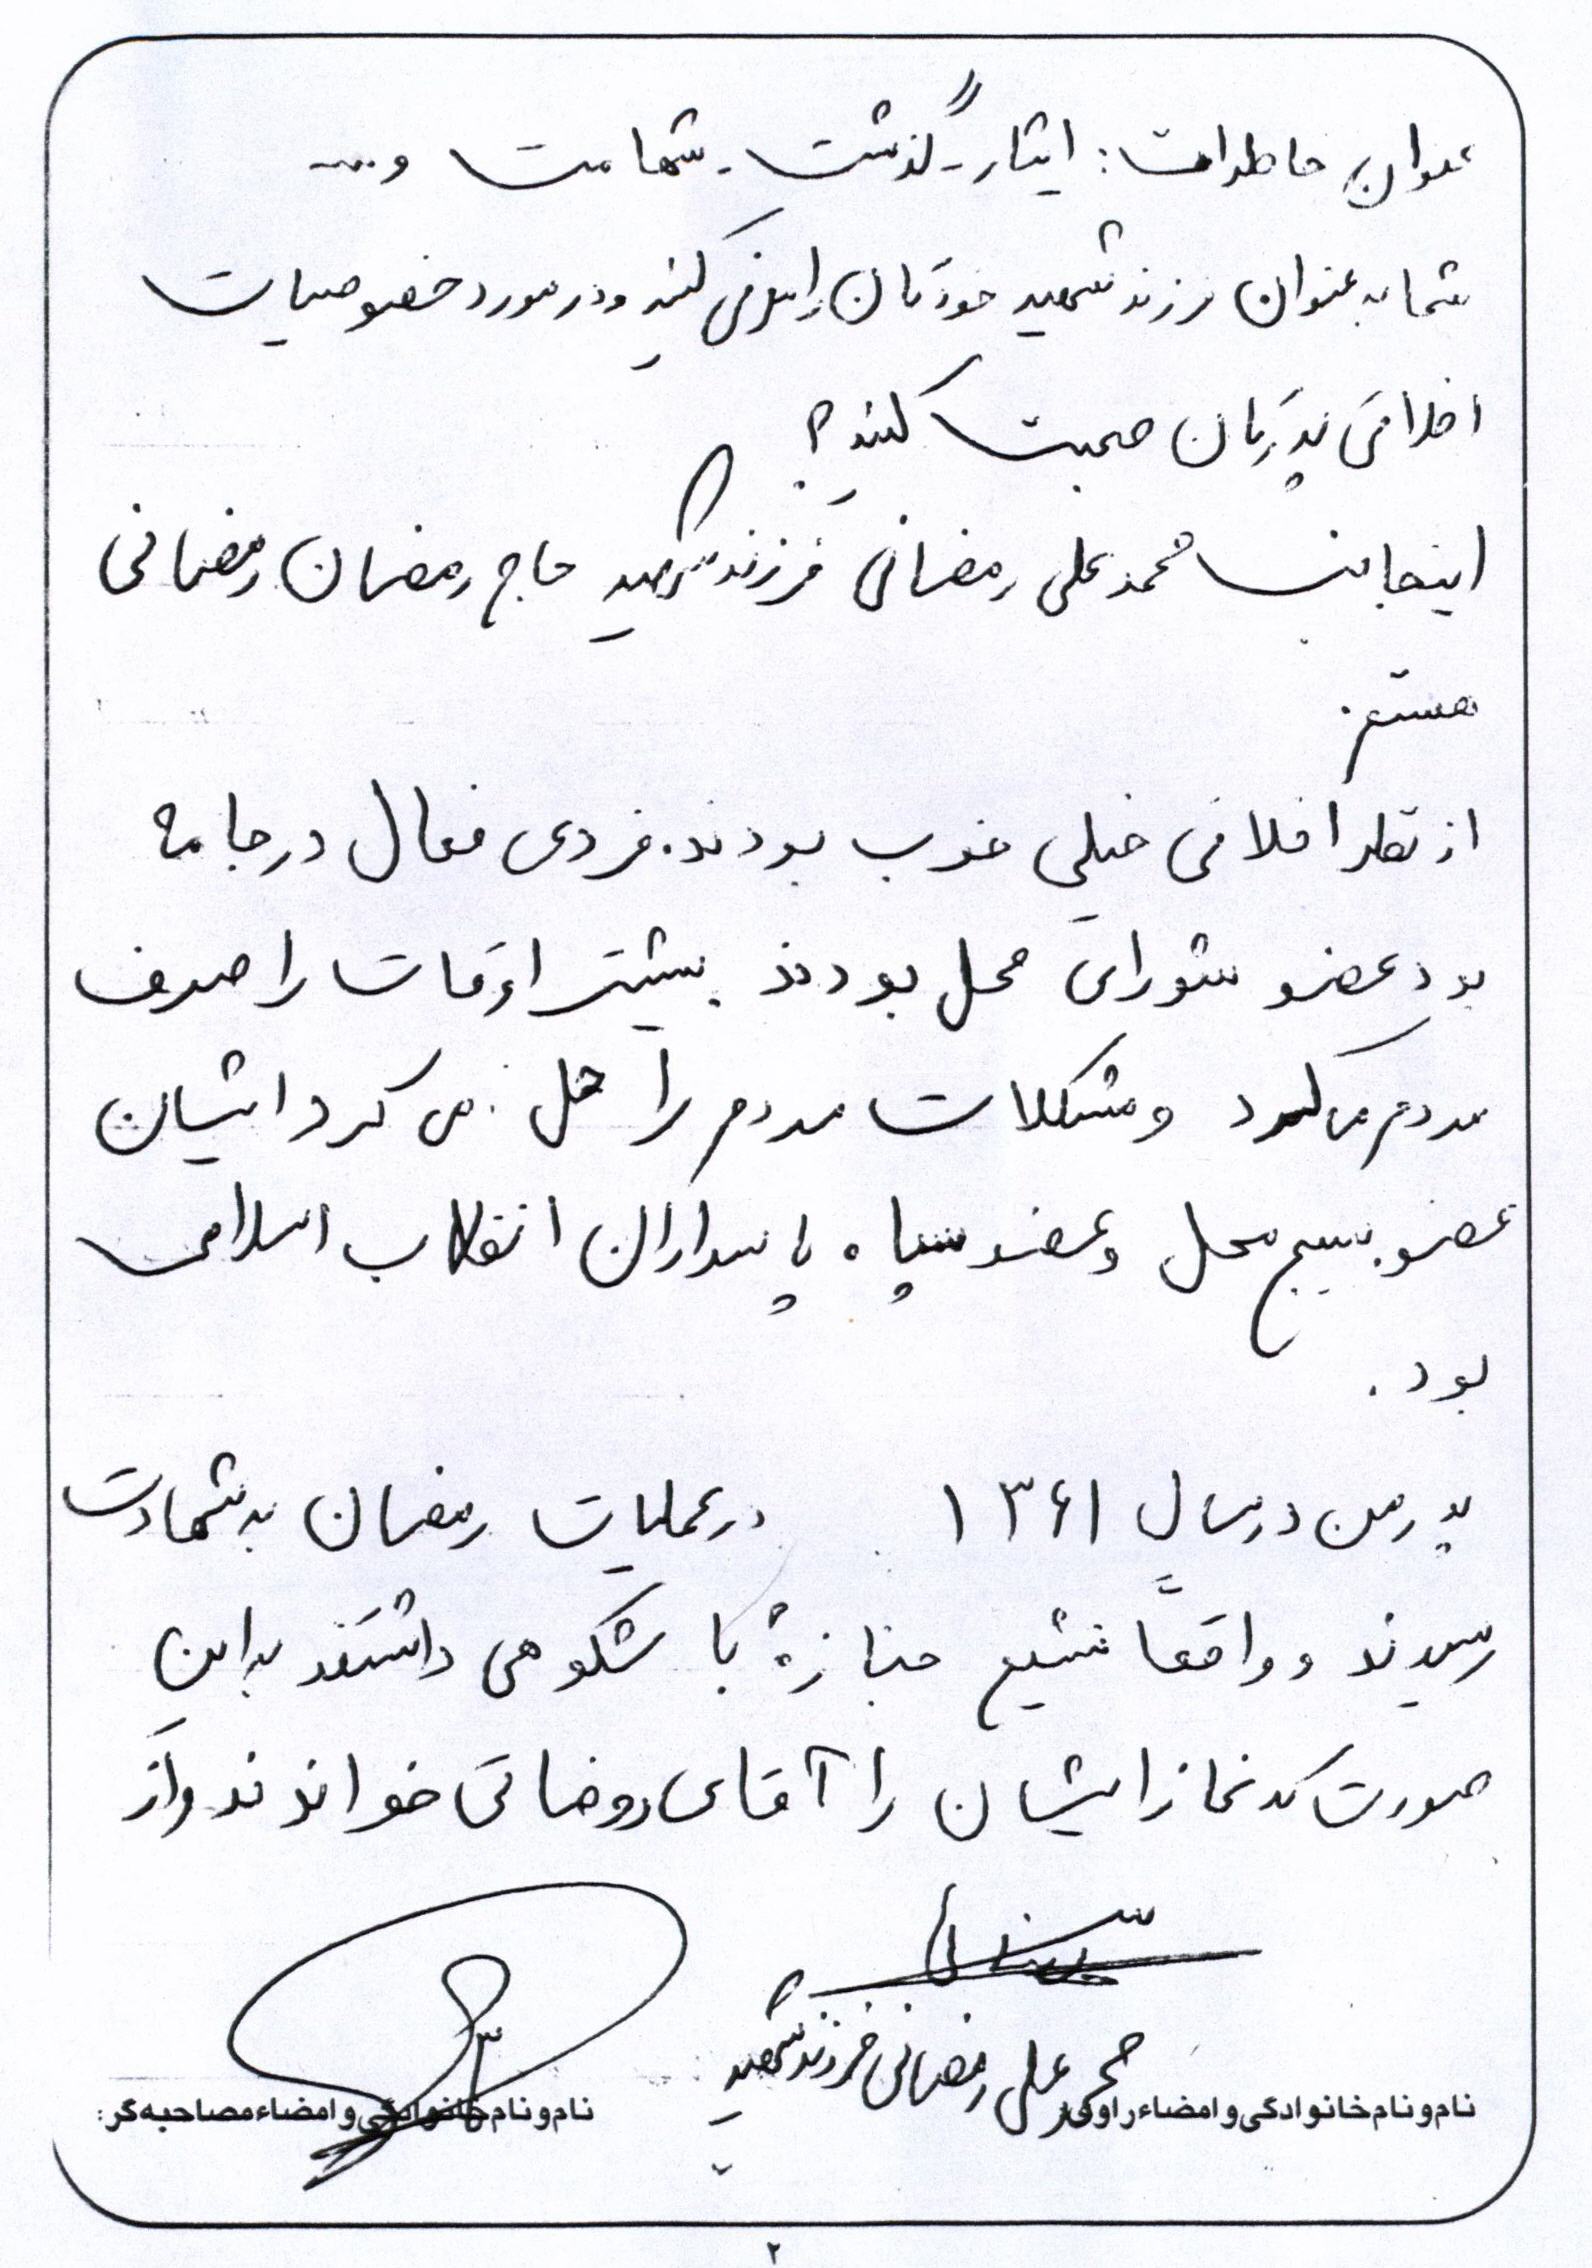 عنوان خاطرات: ایثار - گذشت - شهامت و....
شما به عنوان فرزند شهید خودتان را معرفی کنید و در مورد خصوصیات
اخلاقی پدرتان صحبت کنید؟
اینجانب محمد علی رمضانی فرزند شهید حاج رمضان رمضانی
هستم.
از نظر اخلاقی خیلی خوب بودند. فردی فعال در جامعه
بود عضو شورای محل بودند بیشتر اوقات را صرف
مردم می‌کرد و مشکلات مردم را حل می کرد ایشان
عضو بسیج محل و عضو سپاه پاسداران انقلاب اسلامی
بود.
پدر من در سال ۱۳۶۱ در عملیات رمضان به شهادت
رسیدند و واقعاً تشیع جنازهٔ با شکوهی داشتند به این
صورت که نماز ایشان را آقای روضاتی خواندند و از
محمد علی رمضانی فرزند شهید
نام و نام خانوادگی و امضاء راوی:
نام و نام خانوادگی و امضاء مصاحبه‌گر:
۲